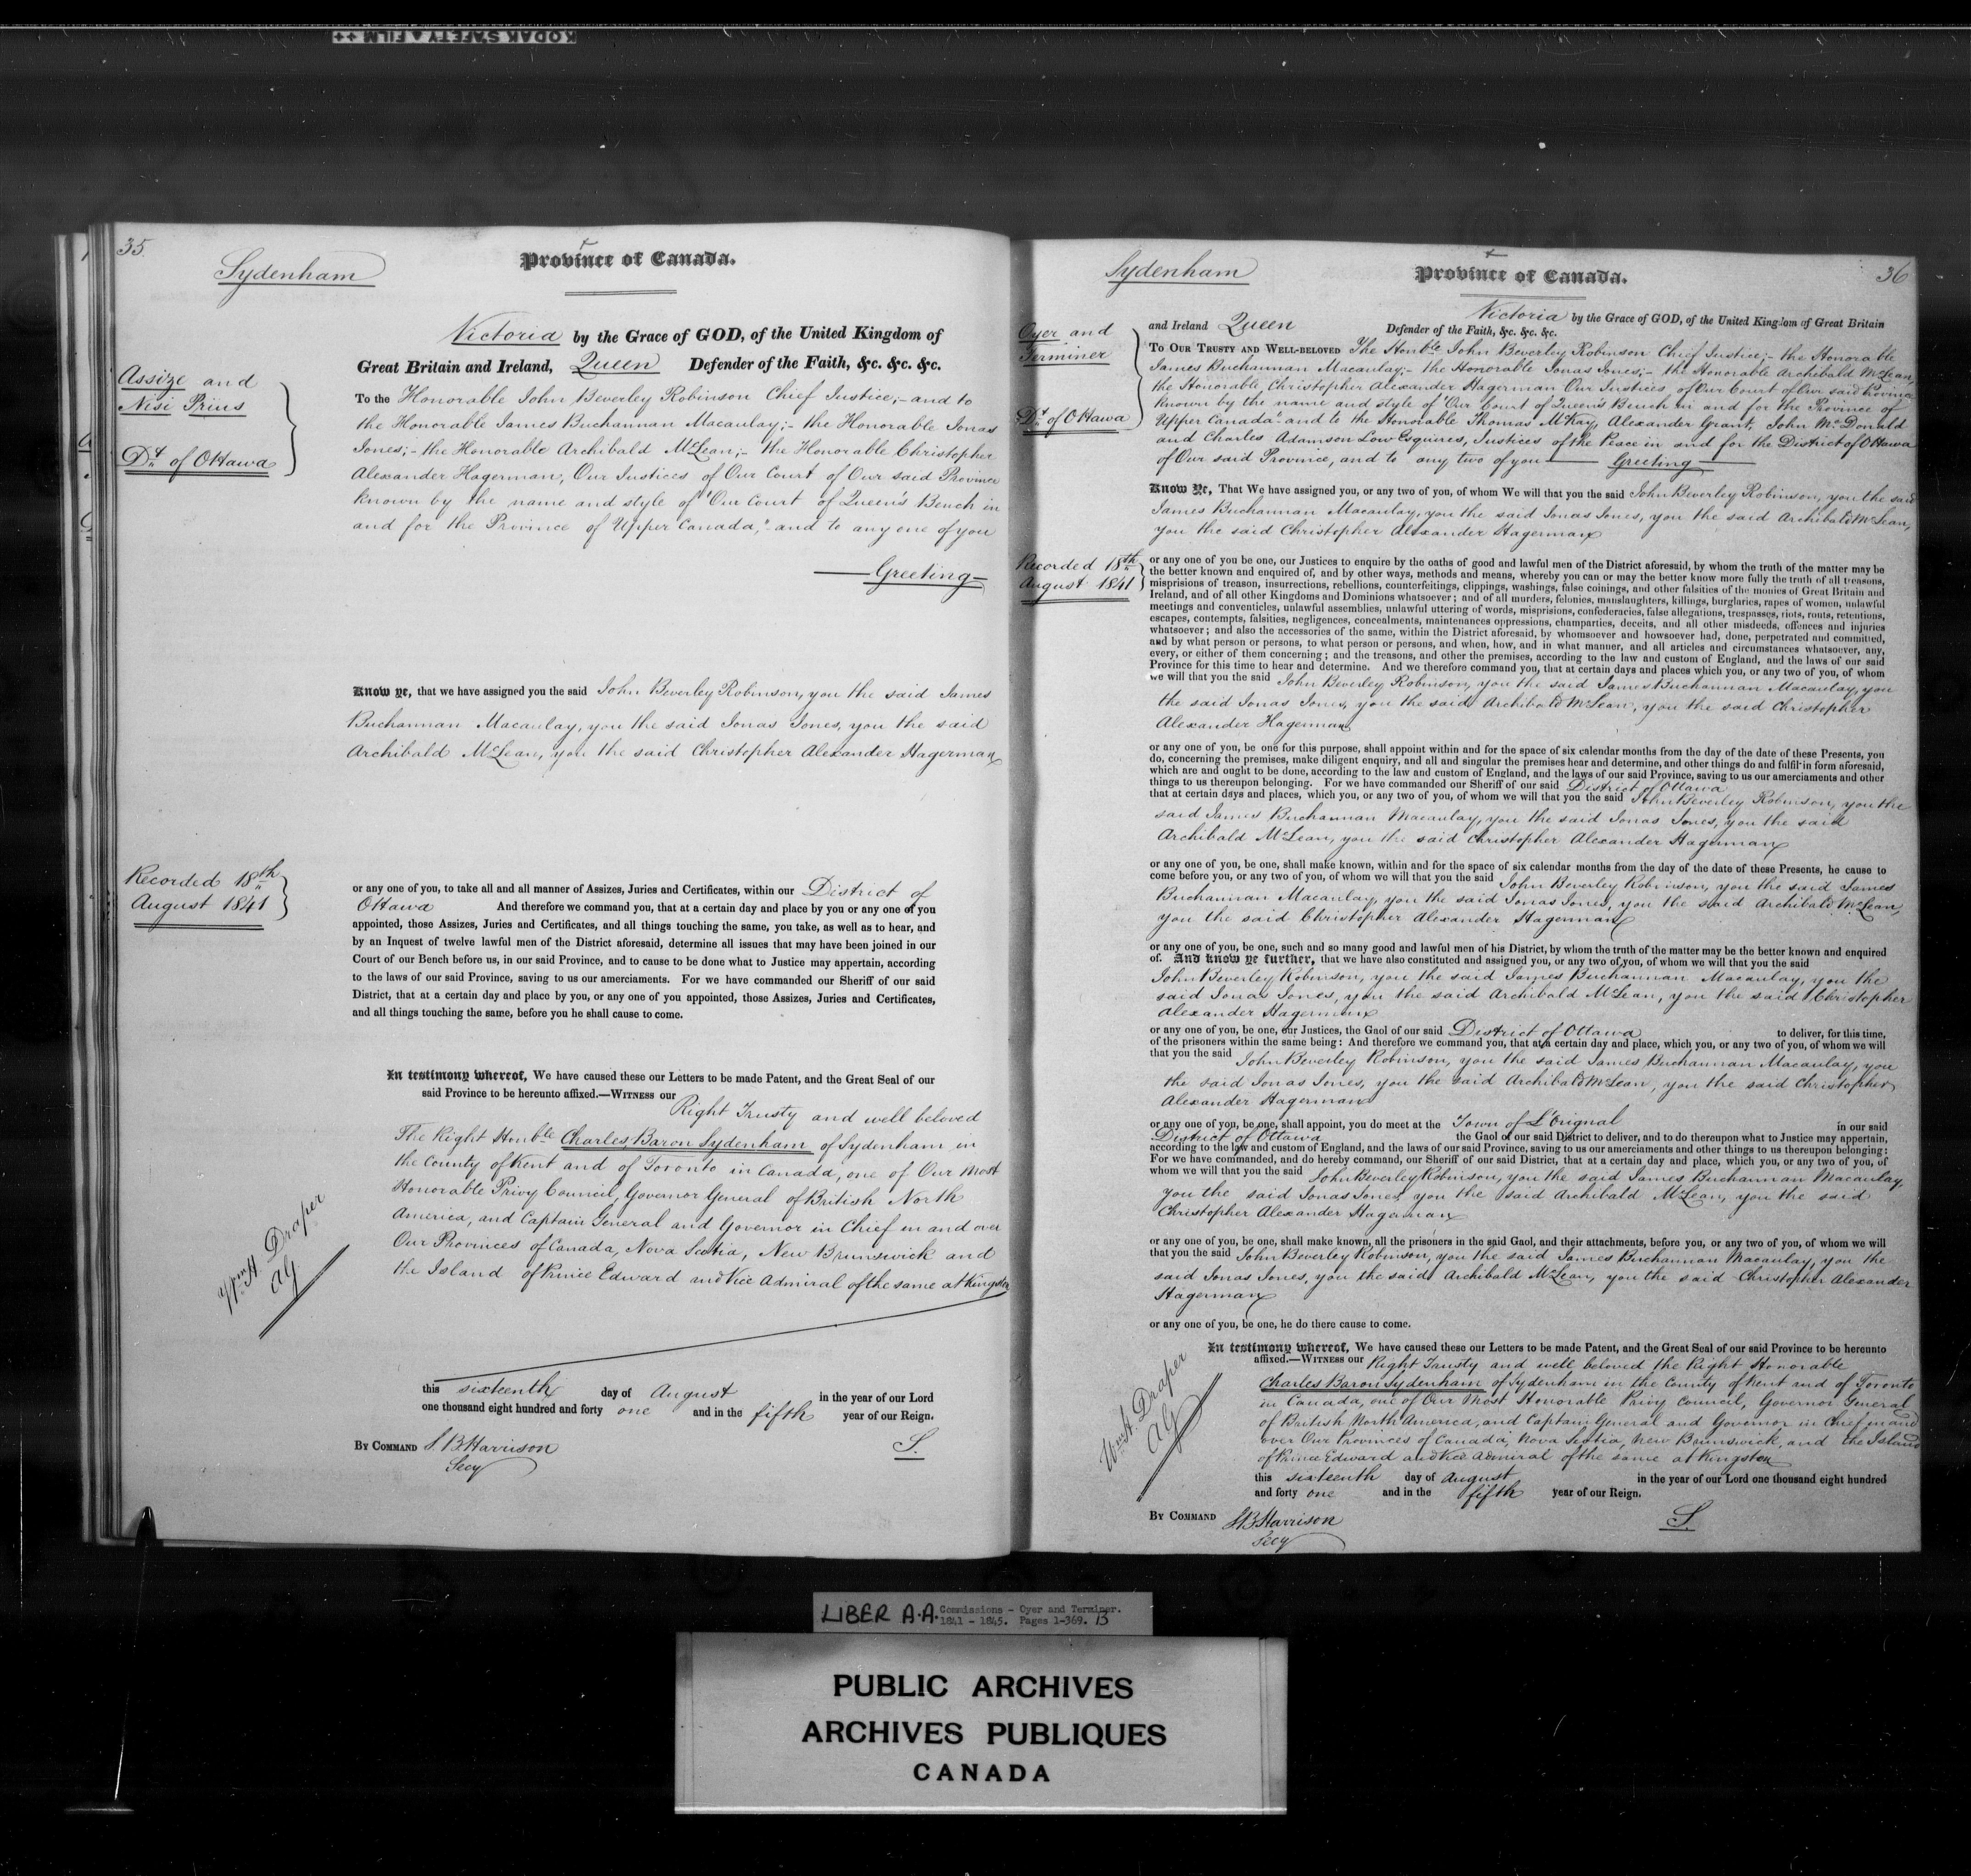 KODAK SAFETY FILM ++
35
Sydenham
Province of Canada.
Assize and
Nisi Prius
Dt. of Ottawa
Victoria by the Grace of GOD, of the United Kingdom of
Great Britain and Ireland, Queen Defender of the Faith, &c. &c. &c.
To the Honorable John Beverley Robinson Chief Justice;- and to
the Honorable James Buchannan Macaulay;- the Honorable Jonas
Jones;- the Honorable Archibald McLean;- the Honorable Christopher
Alexander Hagerman, Our Justices of Our Court of Our said Province
known by the name and style of "Our Court of Queen's Bench in
and for the Province of Upper Canada," and to any one of you
Greeting
Know ye, that we have assigned you the said John Beverley Robinson, you the said James
Buchannan Macaulay, you the said Jonas Jones, you the said
Archibald McLean, you the said Christopher Alexander Hagerman
Recorded 18th
August 1841
or any one of you, to take all and all manner of Assizes, Juries and Certificates, within our District of
Ottawa And therefore we command you, that at a certain day and place by you or any one of you
appointed, those Assizes, Juries and Certificates, and all things touching the same, you take, as well as to hear, and
by an Inquest of twelve lawful men of the District aforesaid, determine all issues that may have been joined in our
Court of our Bench before us, in our said Province, and to cause to be done what to Justice may appertain, according
to the laws of our said Province, saving to us our amerciaments. For we have commanded our Sheriff of our said
District, that at a certain day and place by you, or any one of you appointed, those Assizes, Juries and Certificates,
and all things touching the same, before you he shall cause to come.
In testimony whereof, We have caused these our Letters to be made Patent, and the Great Seal of our
said Province to be hereunto affixed.—WITNESS our Right Trusty and well beloved
The Right Honble Charles, Baron Sydenham of Sydenham in
the County of Kent and of Toronto in Canada, one of Our Most
Honorable Privy Council, Governor General of British North
America, and Captain General and Governor in Chief in and over
Our Provinces of Canada, Nova Scotia, New Brunswick and
the Island of Prince Edward and Vice Admiral of the same at Kingston
Wm H. Draper
AG
this sixteenth day of August in the year of our Lord
one thousand eight hundred and forty one and in the fifth year of our Reign.
BY COMMAND S. B Harrison
Secy
S.
36
Sydenham
Province of Canada.
Oyer and
Terminer
Dt. of Ottawa
Victoria by the Grace of GOD, of the United Kingdom of Great Britain
and Ireland Queen Defender of the Faith, &c. &c. &c.
TO OUR TRUSTY AND WELL-BELOVED The Honble John Beverley Robinson Chief Justice;- the Honorable
James Buchannan Macaulay;- the Honorable Jonas Jones;- the Honorable Archibald McLean,
the Honorable Christopher Alexander Hagerman Our Justices of Our Court of Our said Province
known by the name and style of "Our Court of Queen's Bench in and for the Province of
Upper Canada" and to the Honorable Thomas McKay, Alexander Grant, John McDonald
and Charles Adamson Low Esquires, Justices of the Peace in and for the District of Ottawa
of Our said Province, and to any two of you Greeting
Know Ye, That We have assigned you, or any two of you, of whom We will that you the said John Beverley Robinson, you the said
James Buchannan Macaulay, you the said Jonas Jones, you the said Archibald McLean,
you the said Christopher Alexander Hagerman
Recorded 18th
August 1841
or any one of you be one, our Justices to enquire by the oaths of good and lawful men of the District aforesaid, by whom the truth of the matter may be
the better known and enquired of, and by other ways, methods and means, whereby you can or may the better know more fully the truth of all treasons,
misprisions of treason, insurrections, rebellions, counterfeitings, clippings, washings, false coinings, and other falsities of the monies of Great Britain and
Ireland, and of all other Kingdoms and Dominions whatsoever; and of all murders, felonies, manslaughters, killings, burglaries, rapes of women, unlawful
meetings and conventicles, unlawful assemblies, unlawful uttering of words, misprisions, confederacies, false allegations, trespasses, riots, routs, retentions,
escapes, contempts, falsities, negligences, concealments, maintenances oppressions, champarties, deceits, and all other misdeeds, offences and injuries
whatsoever; and also the accessories of the same, within the District aforesaid, by whomsoever and howsoever had, done, perpetrated and committed,
and by what person or persons, to what person or persons, and when, how, and in what manner, and all articles and circumstances whatsoever, any,
every, or either of them concerning; and the treasons, and other the premises, according to the law and custom of England, and the laws of our said
Province for this time to hear and determine. And we therefore command you, that at certain days and places which you, or any two of you, of whom
we will that you the said John Beverley Robinson, you the said James Buchannan Macaulay, you
the said Jonas Jones, you the said Archibald McLean, you the said Christopher
Alexander Hagerman
or any one of you, be one for this purpose, shall appoint within and for the space of six calendar months from the day of the date of these Presents, you
do, concerning the premises, make diligent enquiry, and all and singular the premises hear and determine, and other things do and fulfil in form aforesaid,
which are and ought to be done, according to the law and custom of England, and the laws of our said Province, saving to us our amerciaments and other
things to us thereupon belonging. For we have commanded our Sheriff of our said District of Ottawa
that at certain days and places, which you, or any two of you, of whom we will that you the said John Beverley Robinson, you the
said James Buchannan Macaulay, you the said Jonas Jones, you the said
Archibald McLean, you the said Christopher Alexander Hagerman
or any one of you, be one, shall make known, within and for the space of six calendar months from the day of the date of these Presents, he cause to
come before you, or any two of you, of whom we will that you the said John Beverley Robinson, you the said James
Buchannan Macaulay, you the said Jonas Jones, you the said Archibald McLean,
you the said Christopher Alexander Hagerman
or any one of you, be one, such and so many good and lawful men of his District, by whom the truth of the matter may be the better known and enquired
of. And know ye further, that we have also constituted and assigned you, or any two of you, of whom we will that you the said
John Beverley Robinson, you the said James Buchannan Macaulay, you the
said Jonas Jones, you the said Archibald McLean, you the said Christopher
Alexander Hagerman
or any one of you, be one, our Justices, the Gaol of our said District of Ottawa to deliver, for this time,
of the prisoners within the same being: And therefore we command you, that at a certain day and place, which you, or any two of you, of whom we will
that you the said John Beverley Robinson, you the said James Buchannan Macaulay, you
the said Jonas Jones, you the said Archibald McLean, you the said Christopher
Alexander Hagerman
or any one of you, be one, shall appoint, you do meet at the Town of L'Orignal in our said
District of Ottawa the Gaol of our said District to deliver, and to do thereupon what to Justice may appertain,
according to the law and custom of England, and the laws of our said Province, saving to us our amerciaments and other things to us thereupon belonging:
For we have commanded, and do hereby command, our Sheriff of our said District, that at a certain day and place, which you, or any two of you, of
whom we will that you the said John Beverley Robinson, you the said James Buchannan Macaulay,
you the said Jonas Jones, you the said Archibald McLean, you the said
Christopher Alexander Hagerman
or any one of you, be one, shall make known, all the prisoners in the said Gaol, and their attachments, before you, or any two of you, of whom we will
that you the said John Beverley Robinson, you the said James Buchannan Macaulay, you the
said Jonas Jones, you the said Archibald McLean, you the said Christopher Alexander
Hagerman
or any one of you, be one, he do there cause to come.
In testimony whereof, We have caused these our Letters to be made Patent, and the Great Seal of our said Province to be hereunto
affixed.—WITNESS our Right Trusty and well beloved the Right Honorable
Charles Baron Sydenham of Sydenham in the County of Kent and of Toronto
in Canada, one of Our Most Honorable Privy Council, Governor General
of British North America, and Captain General and Governor in Chief in and
over Our Provinces of Canada, Nova Scotia, New Brunswick, and the Island
of Prince Edward and Vice Admiral of the same at Kingston
Wm H. Draper
AG
this sixteenth day of August in the year of our Lord one thousand eight hundred
and forty one and in the fifth year of our Reign.
BY COMMAND S B Harrison
Secy
S.
LIBER A.A. Commissions - Oyer and Terminer.
1841 - 1845. Pages 1-369. B
PUBLIC ARCHIVES
ARCHIVES PUBLIQUES
CANADA